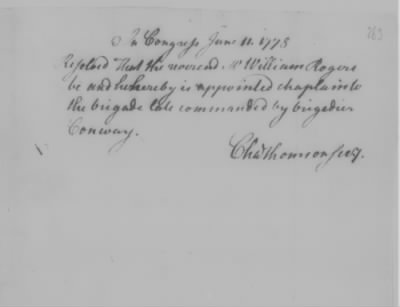 263
In Congress June 11. 1778
Resolved That the reverend Mr William Rogers
be and he hereby is appointed chaplain to
the brigade late commanded by brigadier
Conway.
Chas Thomson secy.